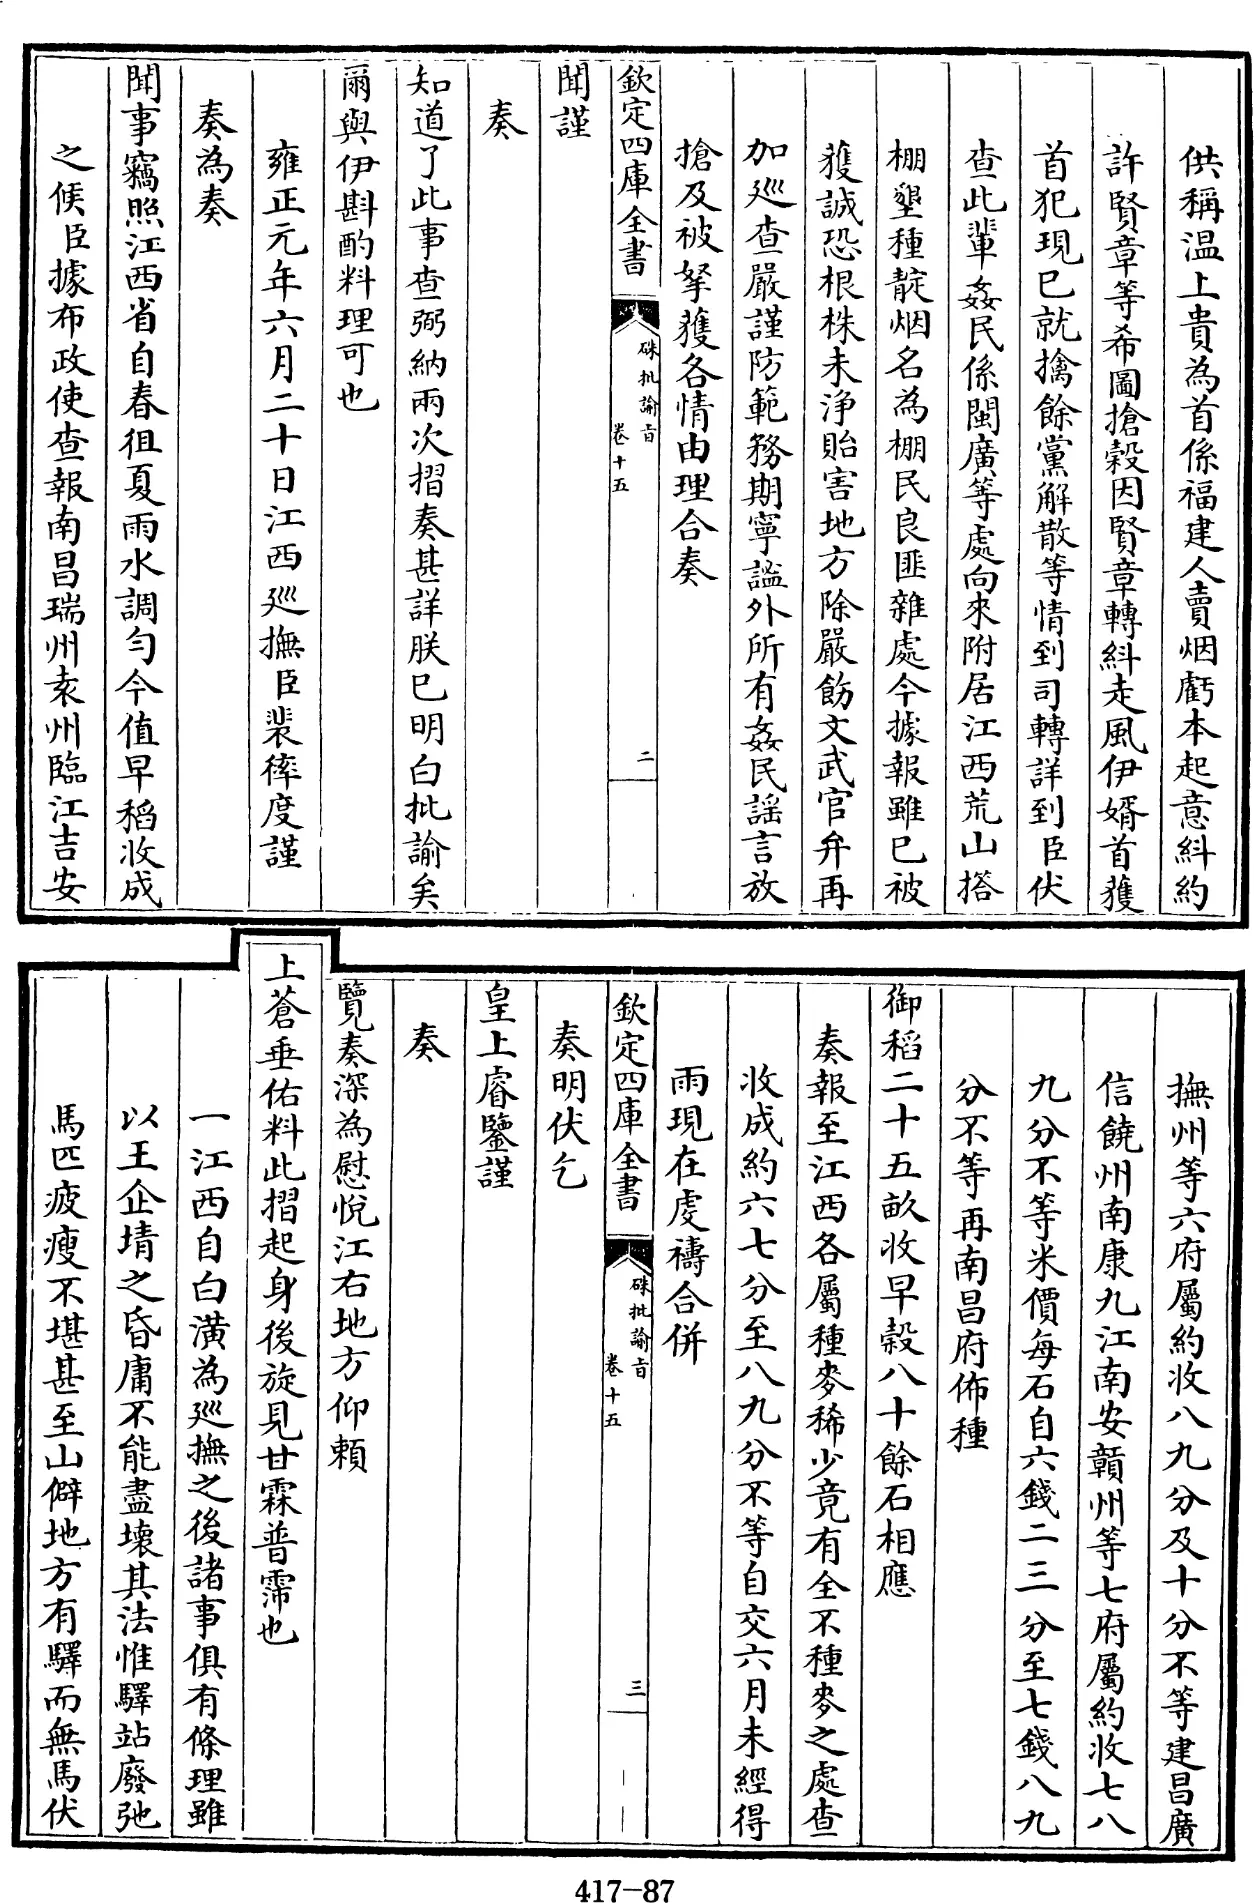 供稱温上貴為首係福建人賣烟虧本起意糾約
許賢章等希圖搶榖因賢章轉糾走風伊婿首獲
首犯現已就擒餘黨解散等情到司轉詳到臣伏
查此輩姦民係閩廣等處向來附居江西荒山搭
棚墾種靛烟名為棚民良匪雜處今據報雖已被
獲誠恐根株未浄貽害地方除嚴飭文武官弁再
加廵查嚴謹防範務期寧謐外所有姦民謡言放
搶及被拏獲各情由理合奏
欽定四庫全書
硃批諭旨
卷十五
二
聞謹
奏
知道了此事查弼納兩次摺奏甚詳朕已明白批諭矣
爾與伊斟酌料理可也
雍正元年六月二十日江西廵撫臣裴𢕑度謹
奏為奏
聞事竊照江西省自春徂夏雨水調勻今值早稻收成
之候臣據布政使查報南昌瑞州袁州臨江吉安
撫州等六府屬約收八九分及十分不等建昌廣
信饒州南康九江南安贛州等七府屬約收七八
九分不等米價每石自六錢二三分至七錢八九
分不等再南昌府佈種
御稻二十五畝收早榖八十餘石相應
奏報至江西各屬種麥稀少竟有全不種麥之處查
收成約六七分至八九分不等自交六月未經得
雨現在虔禱合併
欽定四庫全書
硃批諭旨
卷十五
三
奏明伏乞
皇上睿鑒謹
奏
覽奏深為慰悅江右地方仰賴
上蒼垂佑料此摺起身後旋見甘霖普霈也
一江西自白潢為廵撫之後諸事俱有條理雖
以王企埥之昏庸不能盡壊其法惟驛站廢弛
馬匹疲瘦不堪甚至山僻地方有驛而無馬伏
417-87